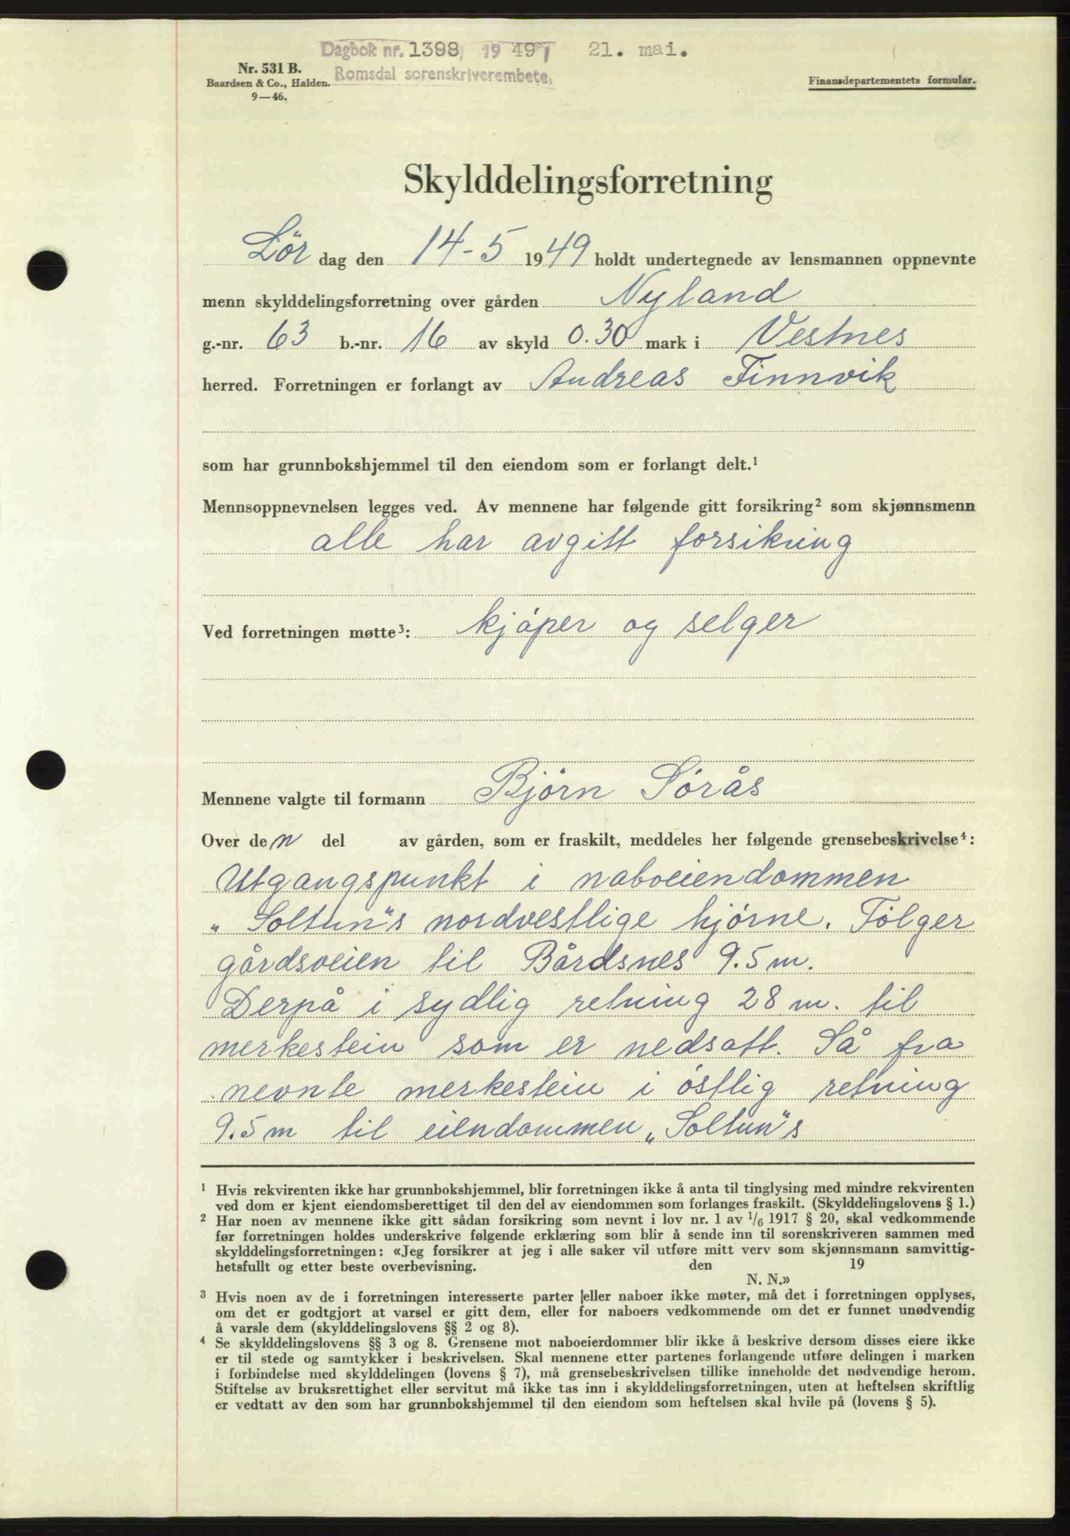 Dagbok nr. 1398, 1949, 21. mai.
Romsdal sorenskriverembete,
Nr. 531 B.
Baardsen & Co., Halden.
9—46.
Finansdepartementets formular.
Skylddelingsforretning
Lör dag den 14-5 1949 holdt undertegnede av lensmannen oppnevnte
menn skylddelingsforretning over gården Nyland
g.-nr. 63 b.-nr. 16 av skyld 0.30 mark i Vestnes
herred. Forretningen er forlangt av Andreas Finnvik
som har grunnbokshjemmel til den eiendom som er forlangt delt.¹
Mennsoppnevnelsen legges ved. Av mennene har følgende gitt forsikring² som skjønnsmenn
alle har avgitt forsikring
Ved forretningen møtte³: kjöper og selger
Mennene valgte til formann Björn Sörås
Over den del av gården, som er fraskilt, meddeles her følgende grensebeskrivelse⁴:
Utgangspunkt i naboeiendommen
„Soltun"s nordvestlige hjörne. Fölger
gårdsveien til Bårdsnes 9.5 m.
Derpå i sydlig retning 28 m. til
merkestein som er nedsatt. Så fra
nevnte merkestein i östlig retning
9.5 m til eiendommen „Soltun"s
¹ Hvis rekvirenten ikke har grunnbokshjemmel, blir forretningen ikke å anta til tinglysing med mindre rekvirenten
ved dom er kjent eiendomsberettiget til den del av eiendommen som forlanges fraskilt. (Skylddelingslovens § 1.)
² Har noen av mennene ikke gitt sådan forsikring som nevnt i lov nr. 1 av 1/6 1917 § 20, skal vedkommende
før forretningen holdes underskrive følgende erklæring som blir å sende inn til sorenskriveren sammen med
skylddelingsforretningen: «Jeg forsikrer at jeg i alle saker vil utføre mitt verv som skjønnsmann samvittig-
hetsfullt og etter beste overbevisning. den 19
N. N.»
³ Hvis noen av de i forretningen interesserte parter eller naboer ikke møter, må det i forretningen opplyses,
om det er godtgjort at varsel er gitt dem, eller for naboers vedkommende om det er funnet unødvendig
å varsle dem (skylddelingslovens §§ 2 og 8).
⁴ Se skylddelingslovens §§ 3 og 8. Grensene mot naboeierdommer blir ikke å beskrive dersom disses eiere ikke
er til stede og samtykker i beskrivelsen. Skal mennene etter partenes forlangende utføre delingen i marken
i forbindelse med skylddelingen (lovens § 7), må grensebeskrivelsen tillike inneholde det nødvendige herom.
Stiftelse av bruksrettighet eller servitut må ikke tas inn i skylddelingsforretningen, uten at heftelsen skriftlig
er vedtatt av den som har grunnbokshjemmel til den eiendom som heftelsen skal hvile på (lovens § 5).